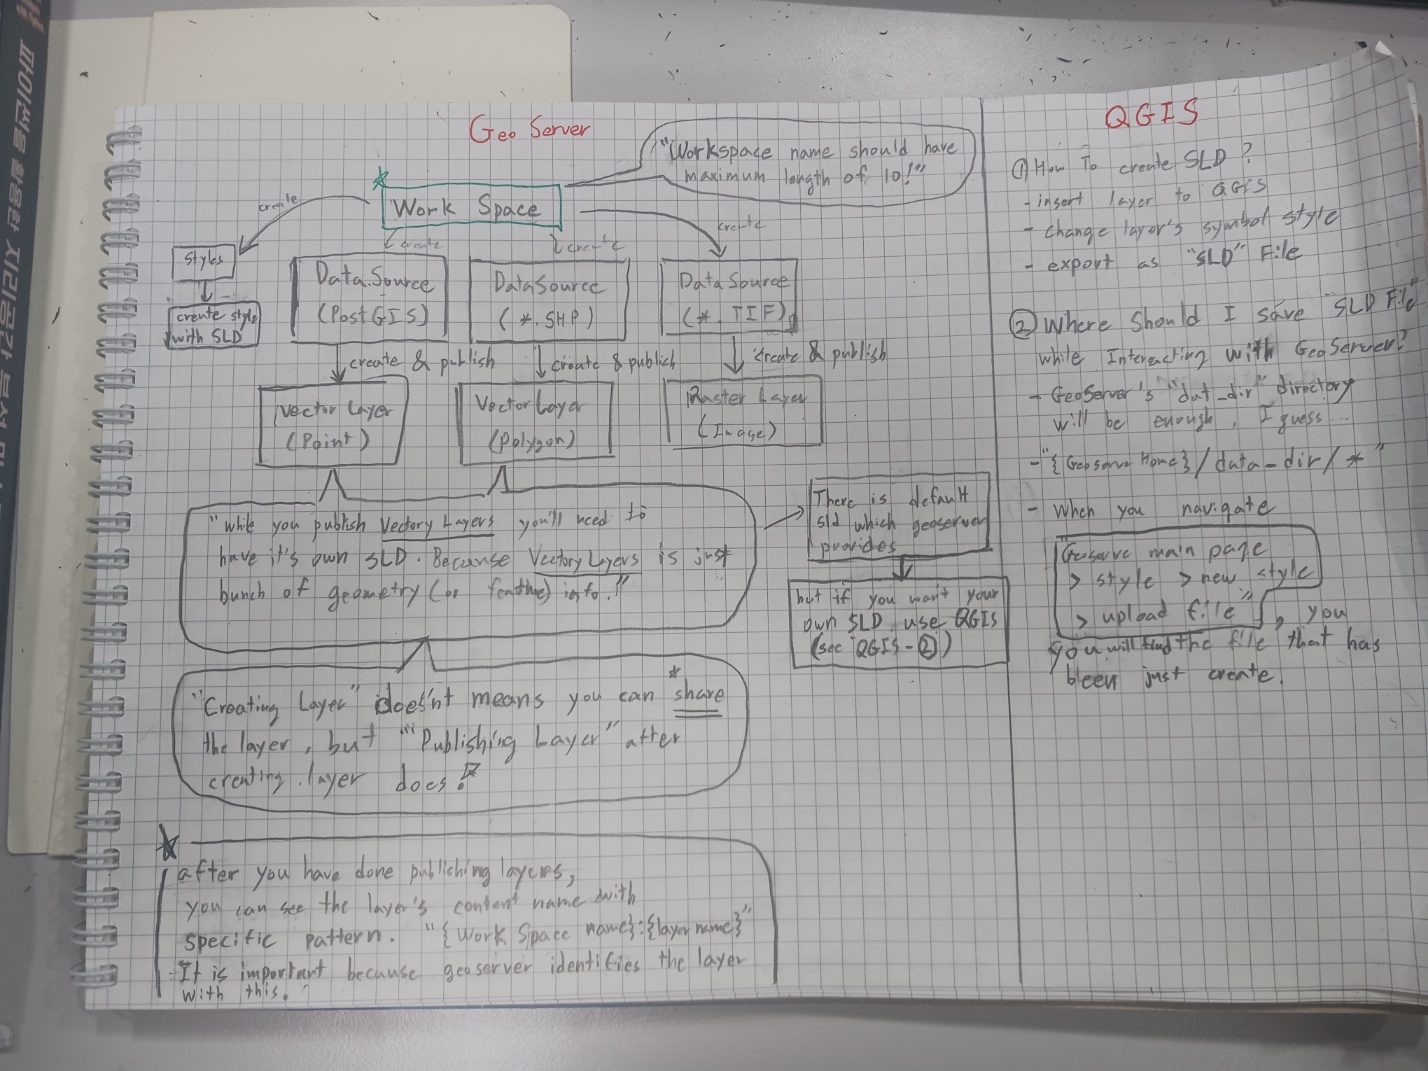 파이썬을 활용한 지리공간 분석 마
Geo Server
"Workspace name should have
maximum length of 10!"
Work Space
create
create
create
create
Styles
create style
with SLD
Data.Source
(PostGIS)
DataSource
(*.SHP)
Data Source
(*.TIF)
create & publish
create & publish
create & publish
Vector Layer
(Point)
Vector Layer
(Polygon)
Raster Layer
(Image)
"while you publish Vectory Layers you'll need to
have it's own SLD. Because Vectory Layers is just
bunch of geometry (or feature) info.!"
There is default
sld which geoserver
provides
but if you want your
own SLD use QGIS
(see QGIS-②)
"Creating Layer" doesn't means you can *share
the layer, but "'Publishing Layer" after
creating layer does!"
★
after you have done publishing layers,
you can see the layer's content name with
specific pattern. "{Work Space name}:{layer name}"
It is important because geoserver identifies the layer
with this.
QGIS
① How To create SLD?
- insert layer to QGIS
- change layer's symbol style
- export as "SLD" File
② Where Should I save "SLD File"
while Interacting with GeoServer?
- GeoServer's "dat_dir" directory
will be enough, I guess...
- "{Geoserver Home}/data-dir/*"
- When you navigate
"Geoserve main page
> style > new style
> upload file", you
you will find the file that has
bleen just create.